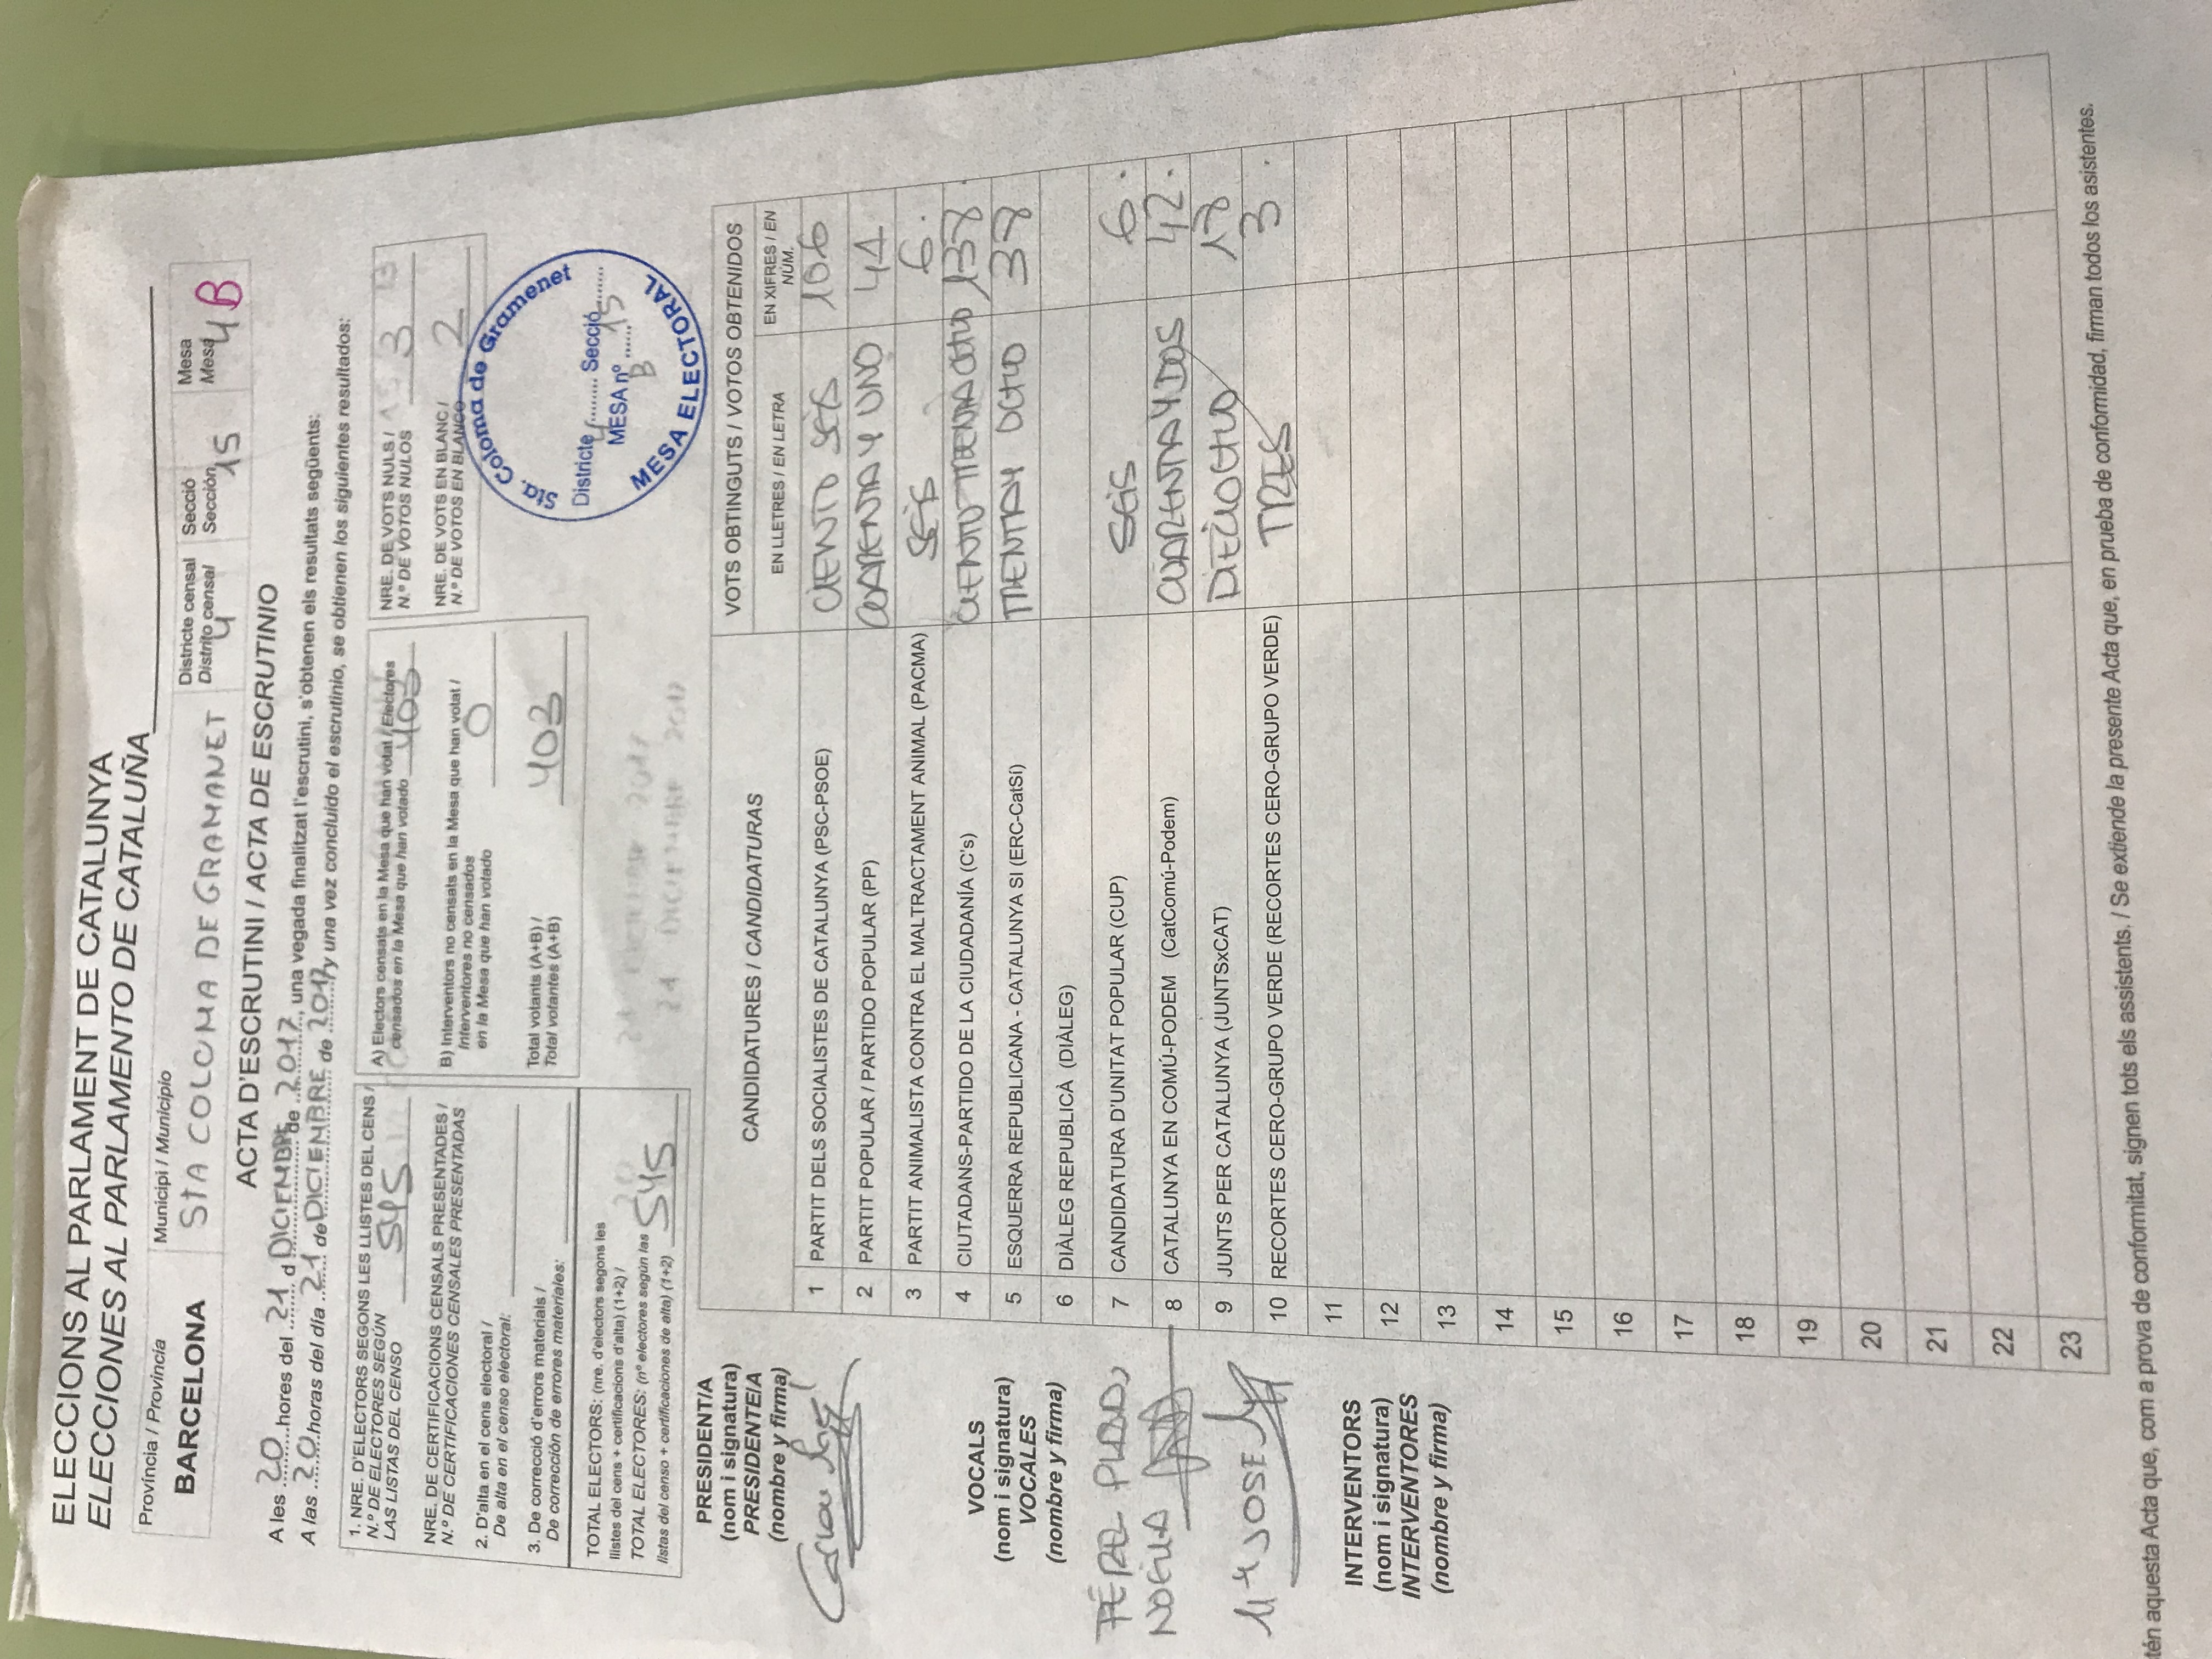 ELECCIONS AL PARLAMENT DE CATALUNYA
ELECCIONES AL PARLAMENTO DE CATALUÑA
Província / Provincia
BARCELONA
Municipi / Municipio
STA COLOMA DE GRAMANET
Districte censal
Distrito censal
4
Secció
Sección
15
Mesa
Mesa
4 B
ACTA D'ESCRUTINI / ACTA DE ESCRUTINIO
A les 20 hores del 21 d DICIEMBRE de 2017, una vegada finalitzat l'escrutini, s'obtenen els resultats següents:
A las 20 horas del día 21 de DICIEMBRE de 2017 y una vez concluido el escrutinio, se obtienen los siguientes resultados:
1. NRE. D'ELECTORS SEGONS LES LLISTES DEL CENS /
N.º DE ELECTORES SEGÚN
LAS LISTAS DEL CENSO 545
NRE. DE CERTIFICACIONS CENSALS PRESENTADES /
N.º DE CERTIFICACIONES CENSALES PRESENTADAS
2. D'alta en el cens electoral /
De alta en el censo electoral:
3. De correcció d'errors materials /
De corrección de errores materiales:
TOTAL ELECTORS: (nre. d'electors segons les
llistes del cens + certificacions d'alta) (1+2) /
TOTAL ELECTORES: (nº electores según las
listas del censo + certificaciones de alta) (1+2) 545
A) Electors censats en la Mesa que han votat / Electores
censados en la Mesa que han votado 403
B) Interventors no censats en la Mesa que han votat /
Interventores no censados
en la Mesa que han votado 0
Total votants (A+B) /
Total votantes (A+B) 403
NRE. DE VOTS NULS /
N.º DE VOTOS NULOS 3
NRE. DE VOTS EN BLANC /
N.º DE VOTOS EN BLANCO 2
Sta. Coloma de Gramenet
Districte 4 Secció
MESA nº 15
B
MESA ELECTORAL
CANDIDATURES / CANDIDATURAS
VOTS OBTINGUTS / VOTOS OBTENIDOS
EN LLETRES / EN LETRA
EN XIFRES / EN NÚM.
1 PARTIT DELS SOCIALISTES DE CATALUNYA (PSC-PSOE) CIENTO SEIS 106
2 PARTIT POPULAR / PARTIDO POPULAR (PP) CUARENTA Y UNO 41
3 PARTIT ANIMALISTA CONTRA EL MALTRACTAMENT ANIMAL (PACMA) SEIS 6.
4 CIUTADANS-PARTIDO DE LA CIUDADANÍA (C's) CIENTO TREINTA OCHO 138.
5 ESQUERRA REPUBLICANA - CATALUNYA SI (ERC-CatSí) TREINTA Y OCHO 38
6 DIÀLEG REPUBLICÀ (DIÀLEG)
7 CANDIDATURA D'UNITAT POPULAR (CUP) SEIS 6.
8 CATALUNYA EN COMÚ-PODEM (CatComú-Podem) CUARENTA Y DOS 42.
9 JUNTS PER CATALUNYA (JUNTSxCAT) DIECIOCHO 18
10 RECORTES CERO-GRUPO VERDE (RECORTES CERO-GRUPO VERDE) TRES 3.
11
12
13
14
15
16
17
18
19
20
21
22
23
PRESIDENT/A
(nom i signatura)
PRESIDENTE/A
(nombre y firma)
VOCALS
(nom i signatura)
VOCALES
(nombre y firma)
NOELIA
Mª JOSE
INTERVENTORS
(nom i signatura)
INTERVENTORES
(nombre y firma)
tén aquesta Acta que, com a prova de conformitat, signen tots els assistents. / Se extiende la presente Acta que, en prueba de conformidad, firman todos los asistentes.